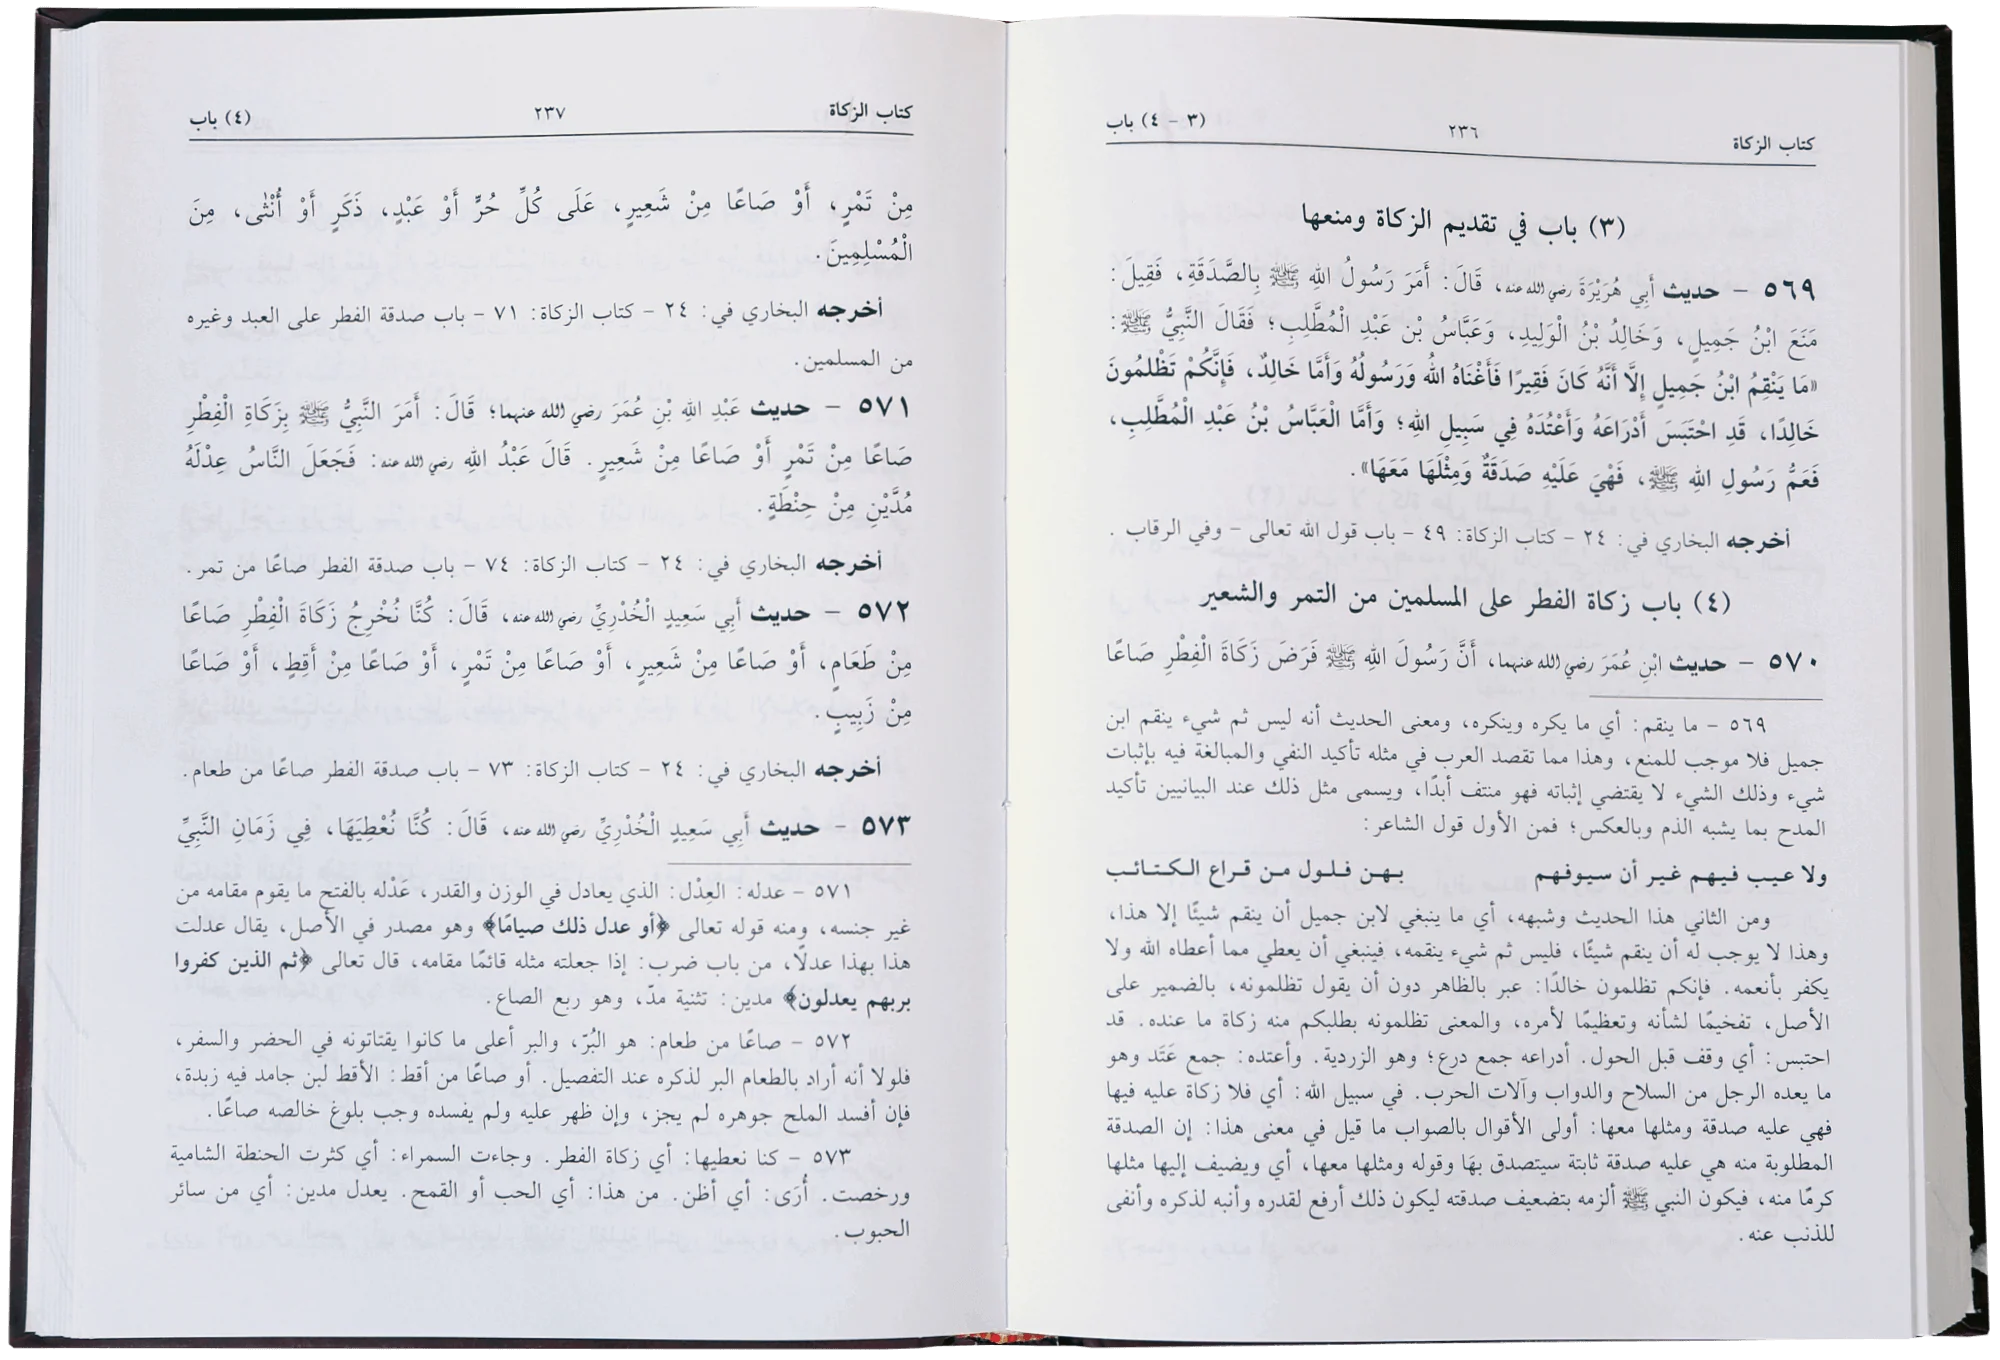 كتاب الزكاة ٢٣٦ (٣ - ٤) باب
(٣) باب في تقديم الزكاة ومنعها
٥٦٩ - حديث أَبِي هُرَيْرَةَ رضي الله عنه، قَالَ: أَمَرَ رَسُولُ اللهِ ﷺ بِالصَّدَقَةِ، فَقِيلَ:
مَنَعَ ابْنُ جَمِيلٍ، وَخَالِدُ بْنُ الْوَلِيدِ، وَعَبَّاسُ بْن عَبْدِ الْمُطَّلِبِ؛ فَقَالَ النَّبِيُّ ﷺ:
«مَا يَنْقِمُ ابْنُ جَمِيلٍ إِلَّا أَنَّهُ كَانَ فَقِيرًا فَأَغْنَاهُ اللهُ وَرَسُولُهُ وَأَمَّا خَالِدٌ، فَإِنَّكُمْ تَظْلمُونَ
خَالِدًا، قَدِ احْتَبَسَ أَدْرَاعَهُ وَأَعْتُدَهُ فِي سَبِيلِ اللهِ؛ وَأَمَّا الْعَبَّاسُ بْنُ عَبْدِ الْمُطَّلِبِ،
فَعَمُّ رَسُولِ اللهِ ﷺ، فَهْيَ عَلَيْهِ صَدَقَةٌ وَمِثْلَهَا مَعَهَا».
أخرجه البخاري في: ٢٤ - كتاب الزكاة: ٤٩ - باب قول الله تعالى - وفي الرقاب .
(٤) باب زكاة الفطر على المسلمين من التمر والشعير
٥٧٠ - حديث ابْنِ عُمَرَ رضي الله عنهما، أَنَّ رَسُولَ اللهِ ﷺ فَرَضَ زَكَاةَ الْفِطْرِ صَاعًا
٥٦٩ - ما ينقم: أي ما يكره وينكره، ومعنى الحديث أنه ليس ثم شيء ينقم ابن
جميل فلا موجب للمنع، وهذا مما تقصد العرب في مثله تأكيد النفي والمبالغة فيه بإثبات
شيء وذلك الشيء لا يقتضي إثباته فهو منتف أبدًا، ويسمى مثل ذلك عند البيانيين تأكيد
المدح بما يشبه الذم وبالعكس؛ فمن الأول قول الشاعر:
ولا عيب فيهم غير أن سيوفهم بهن فلول من قراع الكتائب
ومن الثاني هذا الحديث وشبهه، أي ما ينبغي لابن جميل أن ينقم شيئًا إلا هذا،
وهذا لا يوجب له أن ينقم شيئًا، فليس ثم شيء ينقمه، فينبغي أن يعطي مما أعطاه الله ولا
يكفر بأنعمه. فإنكم تظلمون خالدًا: عبر بالظاهر دون أن يقول تظلمونه، بالضمير على
الأصل، تفخيمًا لشأنه وتعظيمًا لأمره، والمعنى تظلمونه بطلبكم منه زكاة ما عنده. قد
احتبس: أي وقف قبل الحول. أدراعه جمع درع؛ وهو الزردية. وأعتده: جمع عَتَد وهو
ما يعده الرجل من السلاح والدواب وآلات الحرب. في سبيل الله: أي فلا زكاة عليه فيها
فهي عليه صدقة ومثلها معها: أولى الأقوال بالصواب ما قيل في معنى هذا: إن الصدقة
المطلوبة منه هي عليه صدقة ثابتة سيتصدق بهَا وقوله ومثلها معها، أي ويضيف إليها مثلها
كرمًا منه، فيكون النبي ﷺ ألزمه بتضعيف صدقته ليكون ذلك أرفع لقدره وأنبه لذكره وأنفى
للذنب عنه.
كتاب الزكاة ٢٣٧ (٤) باب
مِنْ تَمْرٍ، أَوْ صَاعًا مِنْ شَعِيرٍ، عَلَى كُلِّ حُرٍّ أَوْ عَبْدٍ، ذَكَرٍ أَوْ أُنْثٰى، مِنَ
الْمُسْلِمِينَ.
أخرجه البخاري في: ٢٤ - كتاب الزكاة: ٧١ - باب صدقة الفطر على العبد وغيره
من المسلمين.
٥٧١ - حديث عَبْدِ اللهِ بْنِ عُمَرَ رضي الله عنهما؛ قَالَ: أَمَرَ النَّبِيُّ ﷺ بِزَكَاةِ الْفِطْرِ
صَاعًا مِنْ تَمْرٍ أَوْ صَاعًا مِنْ شَعِيرٍ. قَالَ عَبْدُ اللهِ رضي الله عنه: فَجَعَلَ النَّاسُ عِدْلَهُ
مُدَّيْنِ مِنْ حِنْطَةٍ.
أخرجه البخاري في: ٢٤ - كتاب الزكاة: ٧٤ - باب صدقة الفطر صاعًا من تمر.
٥٧٢ - حديث أَبِي سَعِيدٍ الْخُدْرِيِّ رضي الله عنه، قَالَ: كُنَّا نُخْرِجُ زَكَاةَ الْفِطْرِ صَاعًا
مِنْ طَعَامٍ، أَوْ صَاعًا مِنْ شَعِيرٍ، أَوْ صَاعًا مِنْ تَمْرٍ، أَوْ صَاعًا مِنْ أَقِطٍ، أَوْ صَاعًا
مِنْ زَبِيبٍ.
أخرجه البخاري في: ٢٤ - كتاب الزكاة: ٧٣ - باب صدقة الفطر صاعًا من طعام.
٥٧٣ - حديث أَبِي سَعِيدٍ الْخُدْرِيِّ رضي الله عنه، قَالَ: كُنَّا نُعْطِيَهَا، فِي زَمَانِ النَّبِيِّ
٥٧١ - عدله: العِدْل: الذي يعادل في الوزن والقدر، عَدْله بالفتح ما يقوم مقامه من
غير جنسه، ومنه قوله تعالى ﴿أو عدل ذلك صيامًا﴾ وهو مصدر في الأصل، يقال عدلت
هذا بهذا عدلًا، من باب ضرب: إذا جعلته مثله قائمًا مقامه، قال تعالى ﴿ثم الذين كفروا
بربهم يعدلون﴾ مدين: تثنية مدّ، وهو ربع الصاع.
٥٧٢ - صاعًا من طعام: هو البُرّ، والبر أعلى ما كانوا يقتاتونه في الحضر والسفر،
فلولا أنه أراد بالطعام البر لذكره عند التفصيل. أو صاعًا من أقط: الأقط لبن جامد فيه زبدة،
فإن أفسد الملح جوهره لم يجز، وإن ظهر عليه ولم يفسده وجب بلوغ خالصه صاعًا.
٥٧٣ - كنا نعطيها: أي زكاة الفطر. وجاءت السمراء: أي كثرت الحنطة الشامية
ورخصت. أُرَى: أي أظن. من هذا: أي الحب أو القمح. يعدل مدين: أي من سائر
الحبوب.